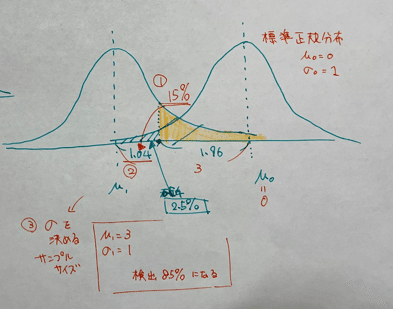 標準正規分布
μ₀=0
σ₀=1
①
15%
1.04
1.96
②
3
μ₁
μ₀
=
0
2.5%
③ σを
決める
サンプル
サイズ
μ₁=3
σ₁=1
検出 85%になる